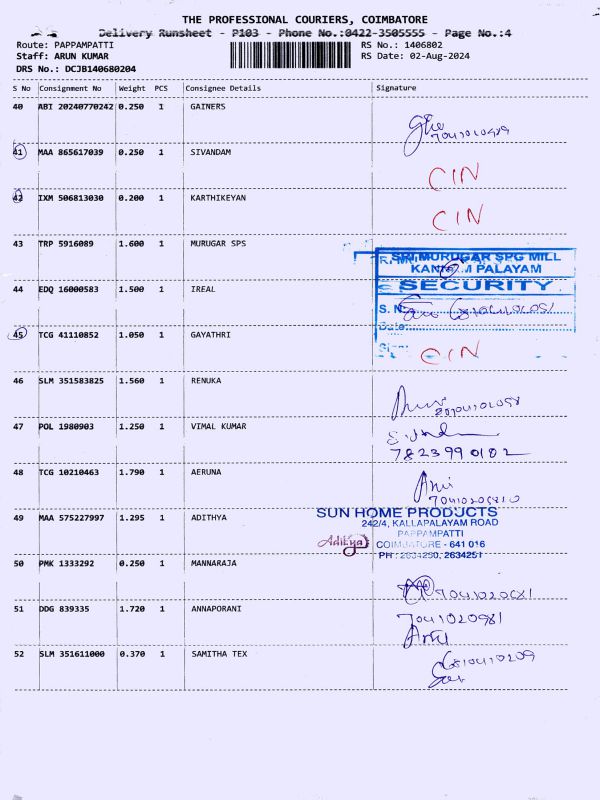 THE PROFESSIONAL COURIERS, COIMBATORE
Delivery Runsheet - P103 - Phone No.:0422-3505555 - Page No.:4
Route: PAPPAMPATTI RS No.: 1406802
Staff: ARUN KUMAR RS Date: 02-Aug-2024
DRS No.: DCJB140680204
S No Consignment No Weight PCS Consignee Details Signature
40 ABI 20240770242 0.250 1 GAINERS
41 MAA 865617039 0.250 1 SIVANDAM
CIN
42 IXM 506813030 0.200 1 KARTHIKEYAN
CIN
43 TRP 5916089 1.600 1 MURUGAR SPS
SRI MURUGAR SPG MILL
PALAYAM
SECURITY
44 EDQ 16000583 1.500 1 IREAL
S. N
Date
45 TCG 41110852 1.050 1 GAYATHRI
CIN
46 SLM 351583825 1.560 1 RENUKA
47 POL 1980903 1.250 1 VIMAL KUMAR
7823990102
48 TCG 10210463 1.790 1 AERUNA
49 MAA 575227997 1.295 1 ADITHYA
SUN HOME PRODUCTS
242/4, KALLAPALAYAM ROAD
PAPPAMPATTI
Aditya COIMBATORE - 641 016
PH : 2634250, 2634251
50 PMK 1333292 0.250 1 MANNARAJA
51 DDG 839335 1.720 1 ANNAPORANI
7041020981
52 SLM 351611000 0.370 1 SAMITHA TEX